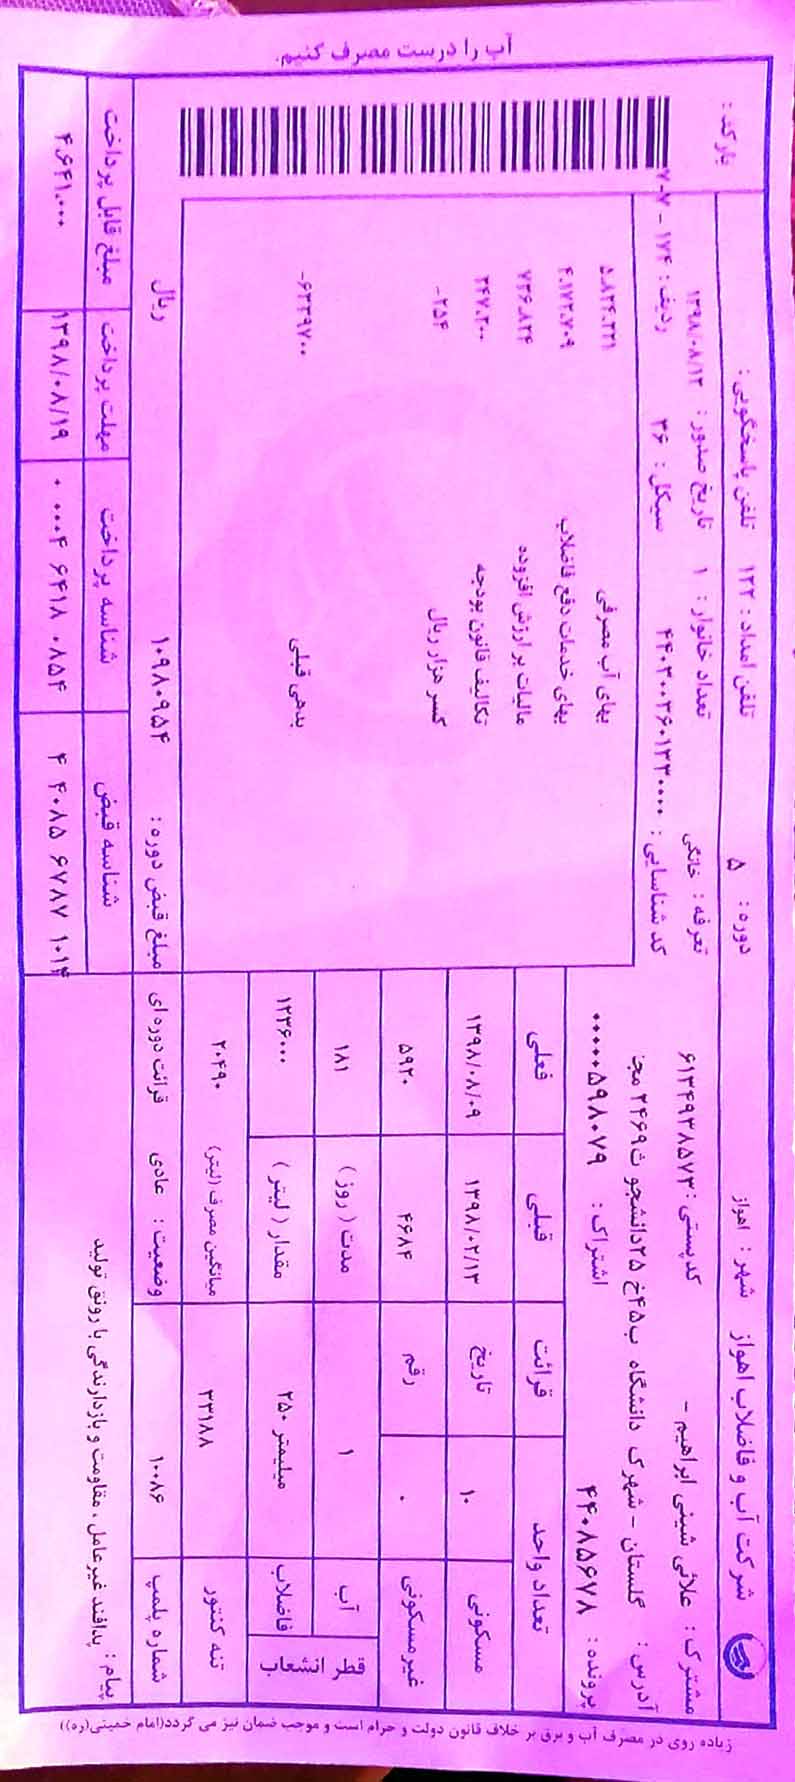 زیاده روی در مصرف آب و برق بر خلاف قانون دولت و حرام است و موجب ضمان نیز می گردد(امام خمینی(ره))
شرکت آب و فاضلاب اهواز شهر : اهواز دوره : ۵ تلفن امداد : ۱۲۲ تلفن پاسخگویی :
مشترک : علائی شینی ابراهیم - کدپستی : ۶۱۳۴۹۳۸۵۷۳ تعرفه : خانگی تعداد خانوار : ۱ تاریخ صدور : ۱۳۹۸/۰۸/۱۲
آدرس : گلستان - شهرک دانشگاه ب۴۵خ ۲۵دانشجو ث۲۴۶۹ مجـ کد شناسایی : ۴۴۰۳۰۰۲۶۰۱۳۳۰۰۰۰ سیکل : ۲۶ ردیف : ۱۷۴ - ۷-۷
پرونده : ۴۴۰۸۵۶۷۸ اشتراک : ۰۰۰۰۰۵۹۸۰۷۹
بارکد :
تعداد واحد قرائت قبلی فعلی
مسکونی ۱۰ تاریخ ۱۳۹۸/۰۲/۱۳ ۱۳۹۸/۰۸/۰۹
غیرمسکونی ۰ رقم ۴۶۸۴ ۵۹۲۰
قطر انشعاب
آب ۱ مدت ( روز ) ۱۸۱
فاضلاب ۲۵۰ میلیمتر مقدار ( لیتر ) ۱۲۳۶۰۰۰
تنه کنتور ۳۳۱۸۸ میانگین مصرف (لیتر) ۲۰۴۹۰
شماره پلمپ ۱۰۰۸۶ وضعیت : عادی قرائت دوره ای
بهای آب مصرفی ۵.۸۲۴.۲۲۱
بهای خدمات دفع فاضلاب ۴.۱۷۲.۷۰۹
مالیات بر ارزش افزوده ۷۳۶.۸۲۴
تکالیف قانون بودجه ۲۴۷.۲۰۰
کسر هزار ریال -۲۵۴
بدهی قبلی -۶۳۳۹۷۰۰
مبلغ قبض دوره : ۱۰۹۸۰۹۵۴ ریال
شناسه قبض شناسه پرداخت مهلت پرداخت مبلغ قابل پرداخت
۴ ۴۰۸۵ ۶۷۸۷ ۱۰۱۲ ۰ ۰۰۰۴ ۶۴۱۸ ۰۸۵۴ ۱۳۹۸/۰۸/۱۹ ۴.۶۴۱.۰۰۰
پیام : پدافند غیرعامل ، مقاومت و بازدارندگی با رونق تولید
آب را درست مصرف کنیم.